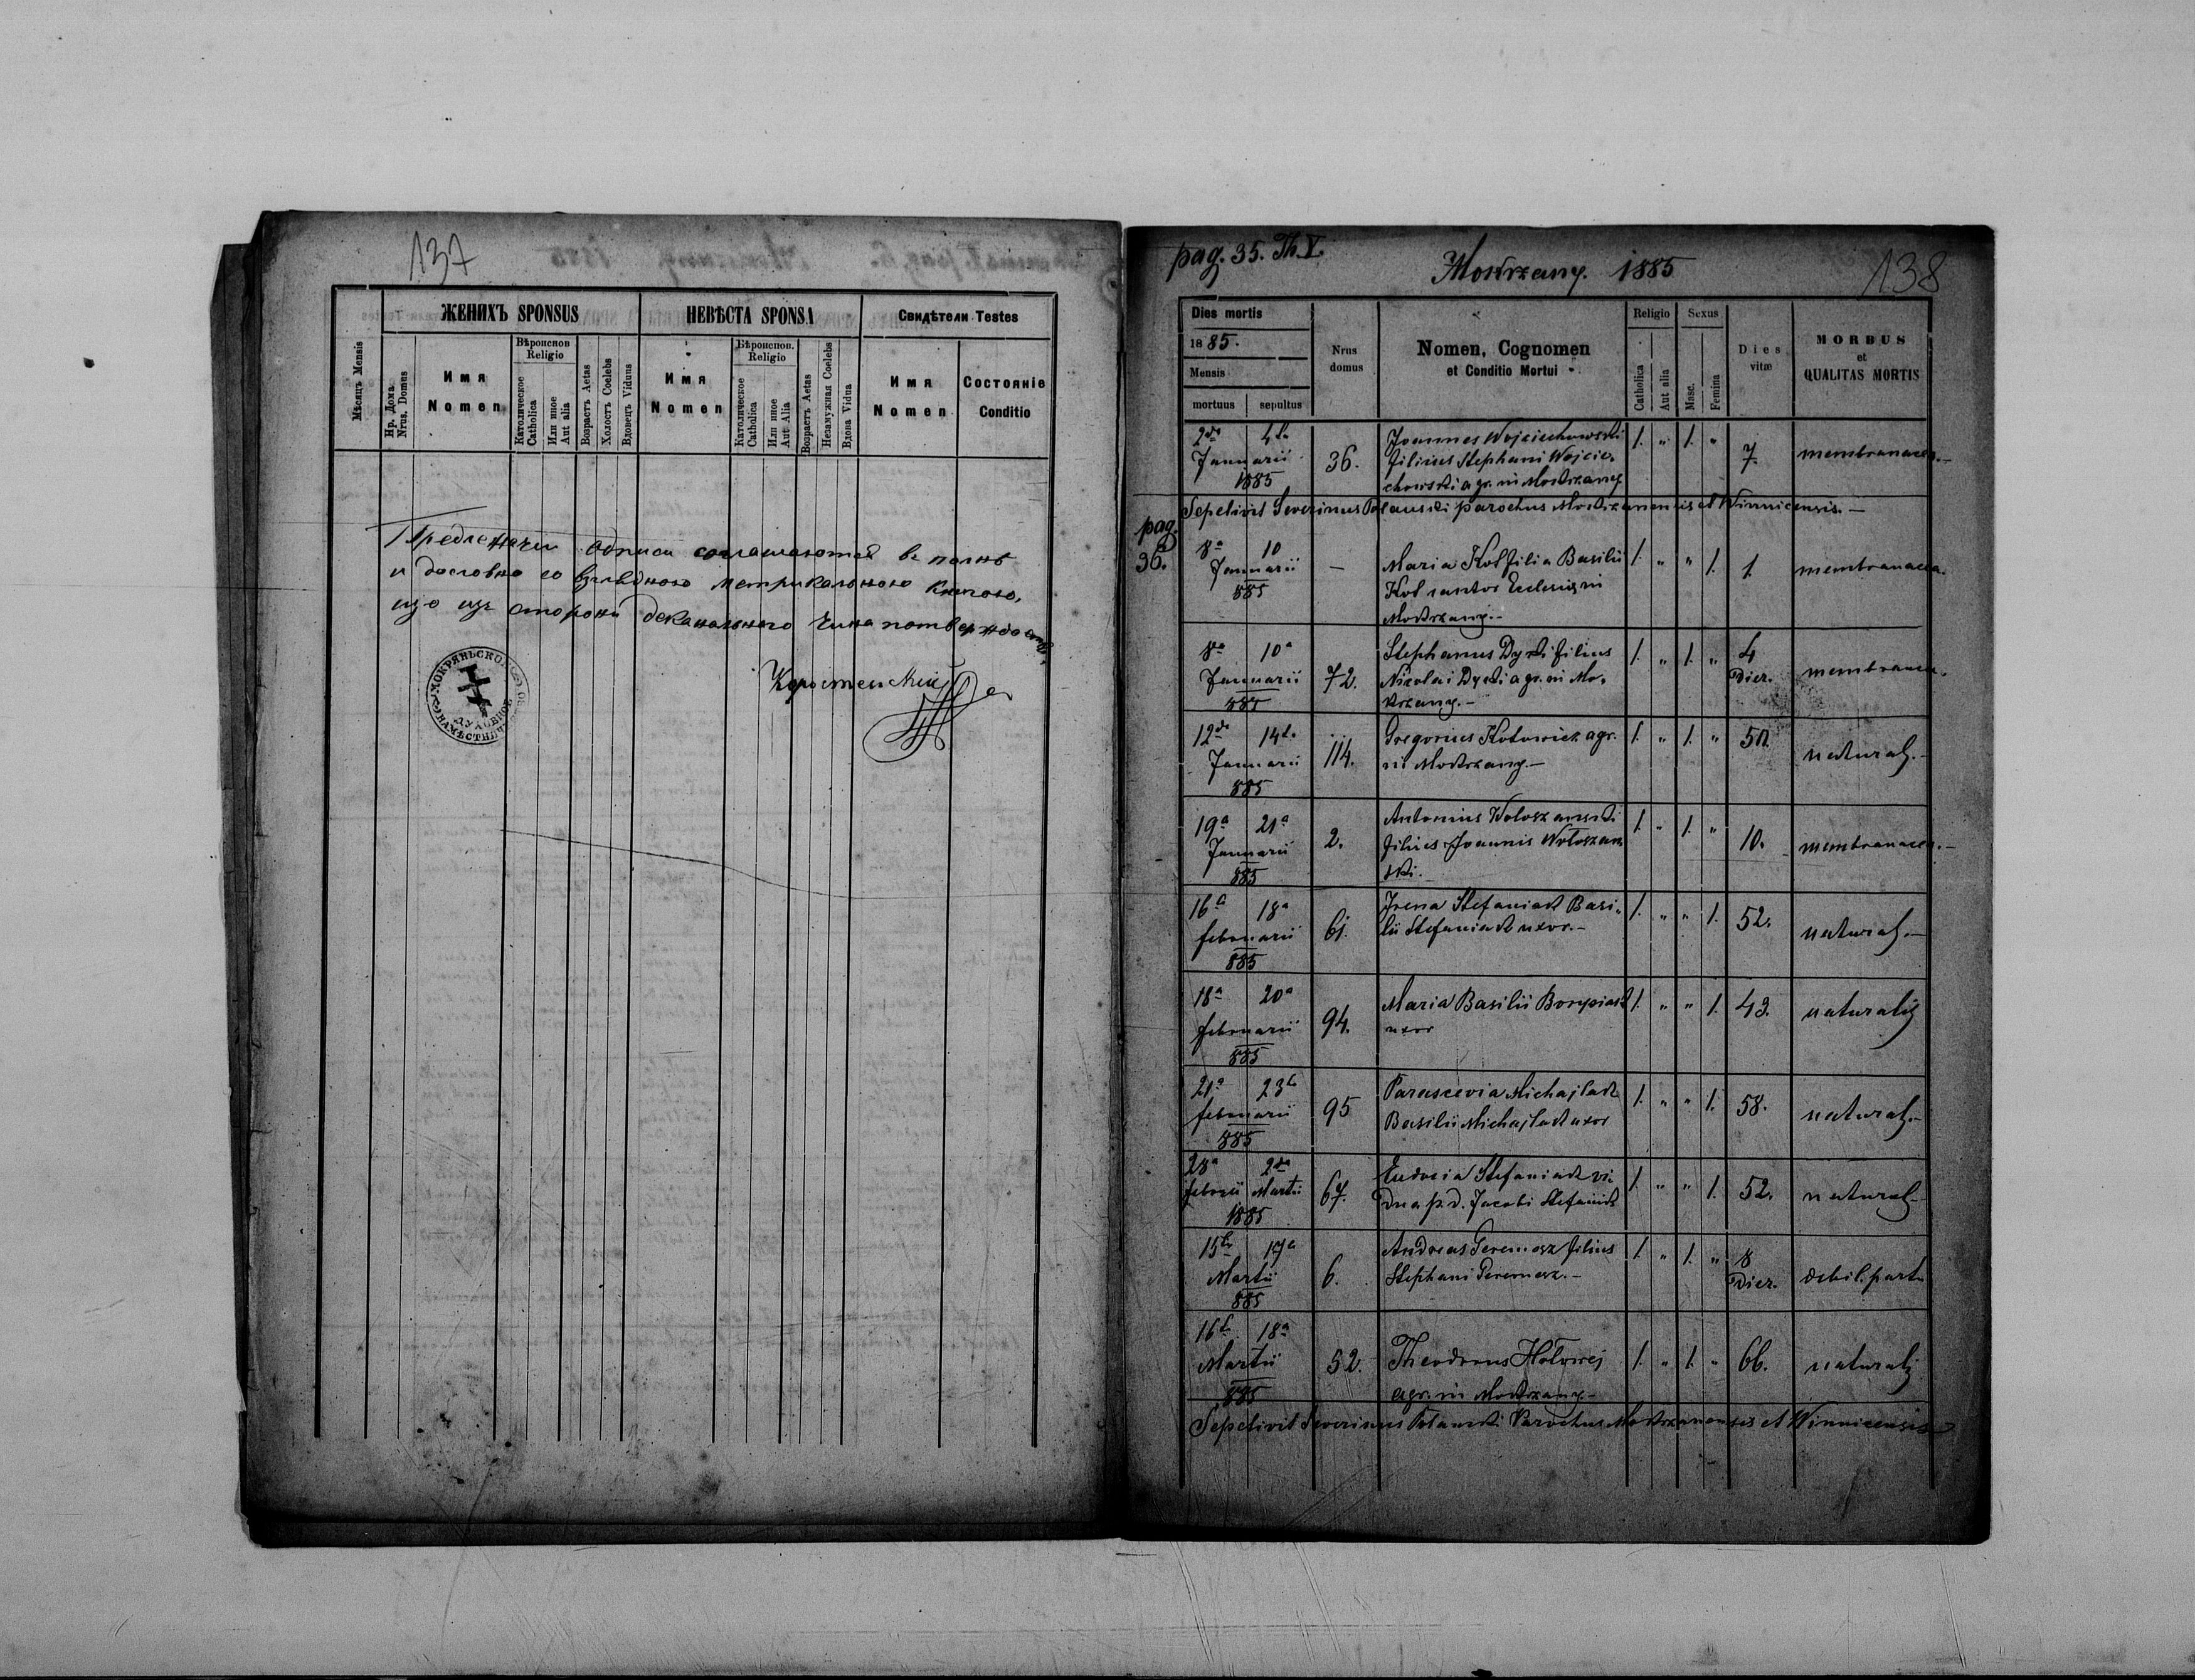 137
ЖЕНИХЪ SPONSUS
НЕВѢСТА SPONSA
Свидѣтели Testes
Мѣсяцъ Mensis
Нр. Дома
Nrus. Domus
Имя
Nomen
Вѣроиспов
Religio
Католическое
Catholica
Или иное
Aut alia
Возрастъ Aetas
Холостъ Coelebs
Вдовецъ Viduus
Имя
Nomen
Вѣроиспов.
Religio
Католическое
Catholica
Или иное
Aut Alia
Возрастъ Aetas
Незамужная Coelebs
Вдова Vidua
Имя
Nomen
Состояніе
Conditio
Предлежачи одписи соглашаются въ полнѣ
и дословно со метрикальною книгою,
що изъ стороны деканального

pag. 35. Th. V.
Mokrzany. 1885
138
Dies mortis
1885.
Mensis
mortuus
sepultus
Nrus
domus
Nomen, Cognomen
et Conditio Mortui
Religio
Catholica
Aut alia
Sexus
Masc.
Femina
Dies
vitæ
MORBUS
et
QUALITAS MORTIS
2da 4ta
Januarii
1885
36.
Joannes Wojciechowski
filius Stephani Wojcie-
chowski agr. in Mokrzany
1. " 1. "
7.
membranacea.—
Sepelivit Severinus Polanski parochus Mokrzanensis et Winnicensis.—
pag.
36.
8a 10
Januarii
885
—
Maria Kot filia Basilii
Kot cantor Ecclesiæ in
Mokrzany.—
1. " " 1.
1.
membranacea.
8a 10a
Januarii
885
72.
Stephanus Dycki filius
Nicolai Dycki agr. in Mo-
krzany.—
1. " 1. "
4
Dier.
membranacea.
12da 14ta
Januarii
885
114.
Gregorius Kotowicz agr.
in Mokrzany.—
1. " 1. "
50.
natural.—
19a 21a
Januarii
885
2.
Antonius Wołoszanski
filius Joannis Wołoszan
ski.
1. " 1. "
10.
membranacea.—
16a 18a
februarii
885
61.
Irena Stefaniak Basi-
lii Stefaniak uxor.—
1. " " 1.
52.
natural.—
18a 20a
februarii
885
94.
Maria Basilii
uxor
1. " " 1.
43.
naturalis
21a 23a
februarii
885
95
Parascevia Michajlak
Basilii Michajlak uxor
1. " " 1.
58.
natural.—
28a 2da
febrii Martii
1885
67.
Eudocia Stefaniak vi-
dua p. d. Jacobi Stefaniak
1. " " 1.
52.
natural.
15ta 17a
Martii
885
6.
Andreas Geremesz filius
Stephani Geremesz.—
1. " 1. "
8
Dier.
debil. partu
16ta 18a
Martii
885
52.
Theodorus Hołowej
agr. in Mokrzany.—
1. " 1. "
66.
naturalis
Sepelivit Severinus Polanski Parochus Mokrzanensis et Winnicensis